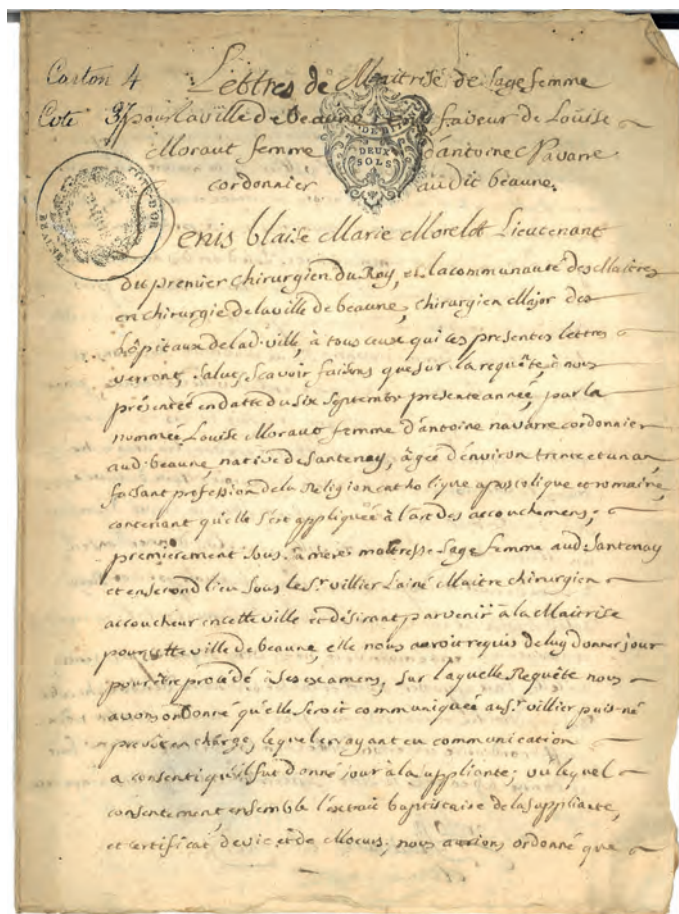 Carton 4
Cote 37
Lettres de Maitrise de sage femme
pour la ville de beaune en faveur de Louise
Moraut femme d'antoine Navarre
cordonnier audit beaune.
DEUX
SOLS
Denis blaise Marie Morelot Lieutenant
du premier chirurgien du Roy, et la communauté des Maitres
en chirurgie de la ville de beaune, chirurgien Major des
hôpitaux de lad. ville, à tous ceux qui ces presentes lettres
verront, salut, sçavoir faisons que sur la requête à nous
présentée en datte du six septembre presente année, par la
nommée Louise Moraut femme d'antoine navarre cordonnier
aud. beaune, native de santenay, âgée d'environ trente et un an
faisant profession de la Religion catholique apostolique et romaine,
contenant qu'elle s'est appliquée à l'art des accouchemens,
premierement sous sa mere maitresse sage femme aud. santenay
et en second lieu sous le Sr. villier Lainé Maitre chirurgien
accoucheur en cette ville et désirant parvenir à la Maitrise
pour cette ville de beaune, elle nous auroit requis de luy donner jour
pour être procédé à ses examens, sur laquelle Requête nous
avons ordonné qu'elle seroit communiquée au Sr. villier puis-né
prevôt en charge, lequel en ayant eu communication
a consenti qu'il fut donné jour à la suppliante; vu lequel
consentement ensemble l'extrait baptistaire de la suppliante,
et certificat de vie et de Moeurs, nous aurions ordonné que